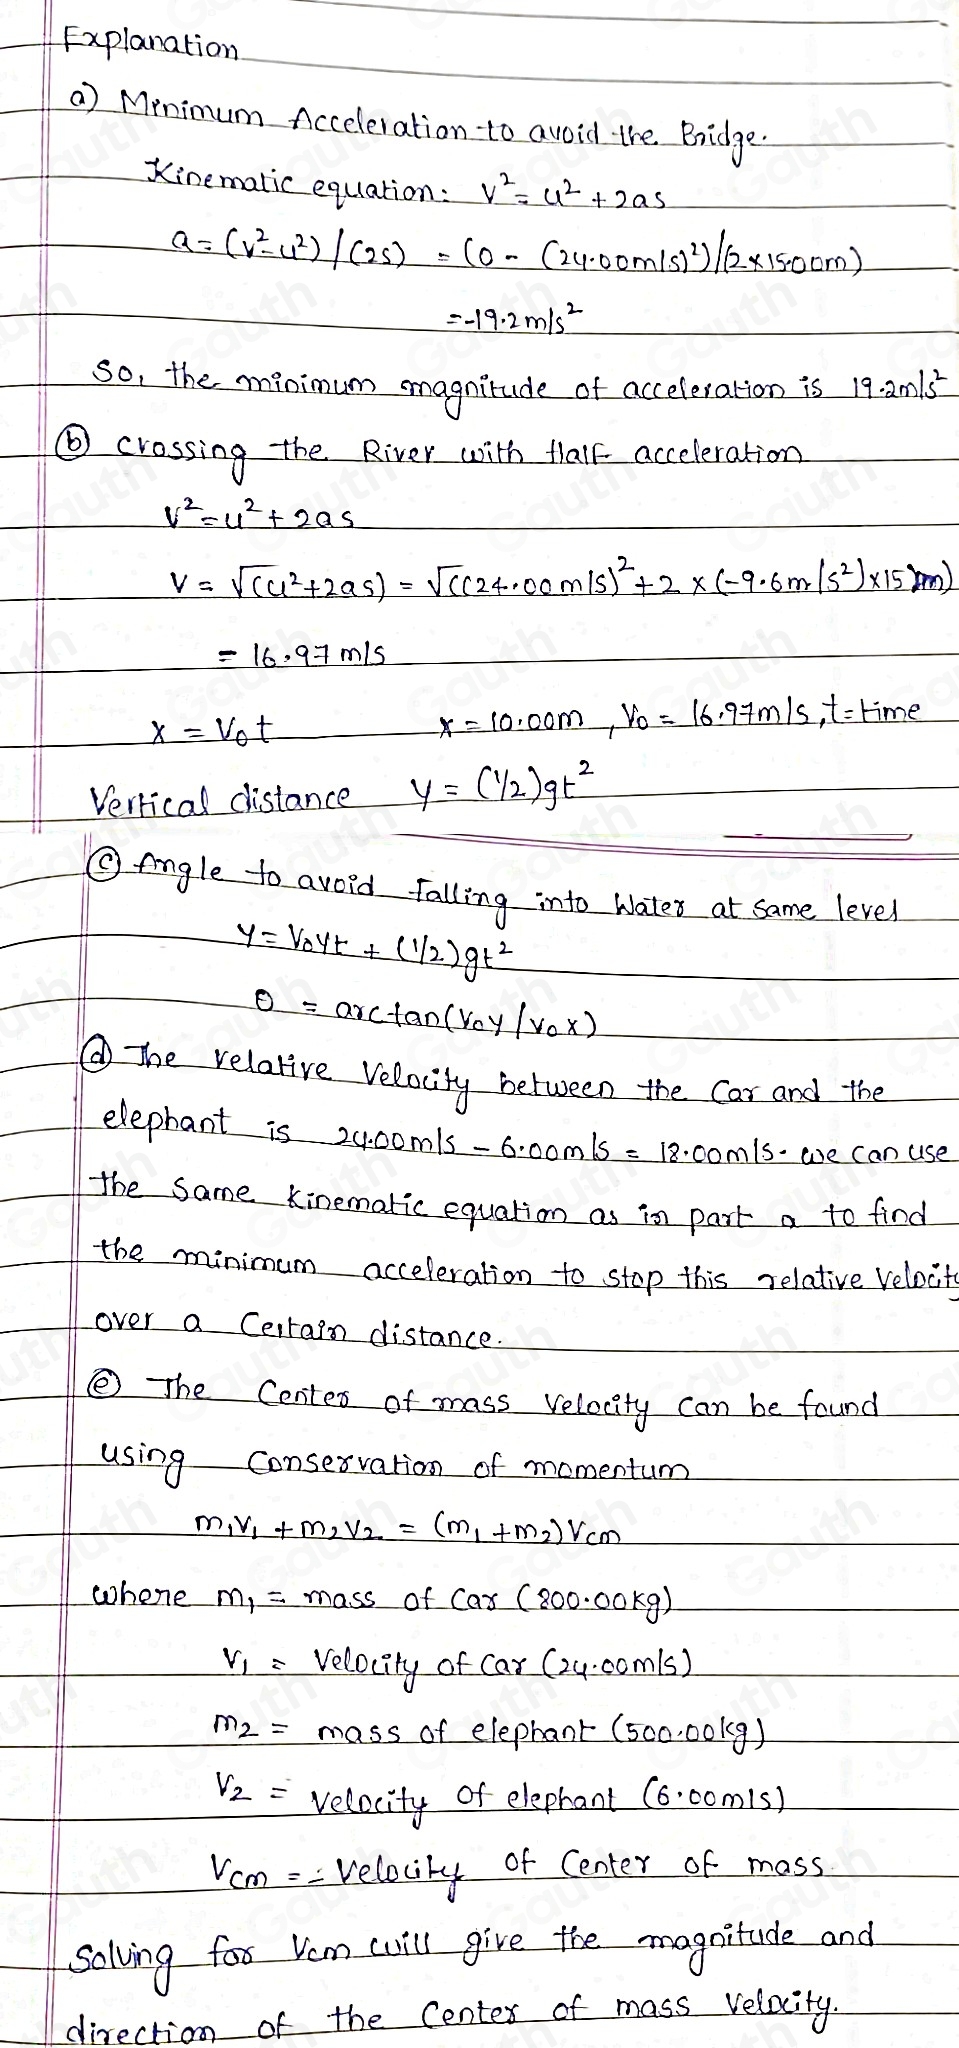 Explanation
a) Minimum Acceleration to avoid the Bridge.
Kinematic equation: v² = u² + 2as
a = (v²-u²)/(2s) = (0 - (24.00m/s)²)/(2×15.00m)
= -19.2m/s²
So, the minimum magnitude of acceleration is 19.2m/s²
ⓑ crossing the River with Half acceleration
v² = u² + 2as
v = √(u²+2as) = √((24.00m/s)² + 2 × (-9.6m/s²)×15m)
= 16.97 m/s
x = v₀t x = 10.00m, v₀ = 16.97m/s, t = time
Vertical distance y = (1/2)gt²
ⓒ Angle to avoid falling into Water at same level
y = v₀yt + (1/2)gt²
θ = arctan(v₀y/v₀x)
ⓓ The relative velocity between the Car and the
elephant is 24.00m/s - 6.00m/s = 18.00m/s. we can use
the same kinematic equation as in part a to find
the minimum acceleration to stop this relative velocity
over a Certain distance.
ⓔ The Center of mass velocity can be found
using Conservation of momentum
m₁v₁ + m₂v₂ = (m₁+m₂)Vcm
where m₁ = mass of Car (800.00kg)
v₁ = velocity of car (24.00m/s)
m₂ = mass of elephant (500.00kg)
v₂ = velocity of elephant (6.00m/s)
Vcm = = velocity of Center of mass
Solving for Vcm will give the magnitude and
direction of the Center of mass velocity.